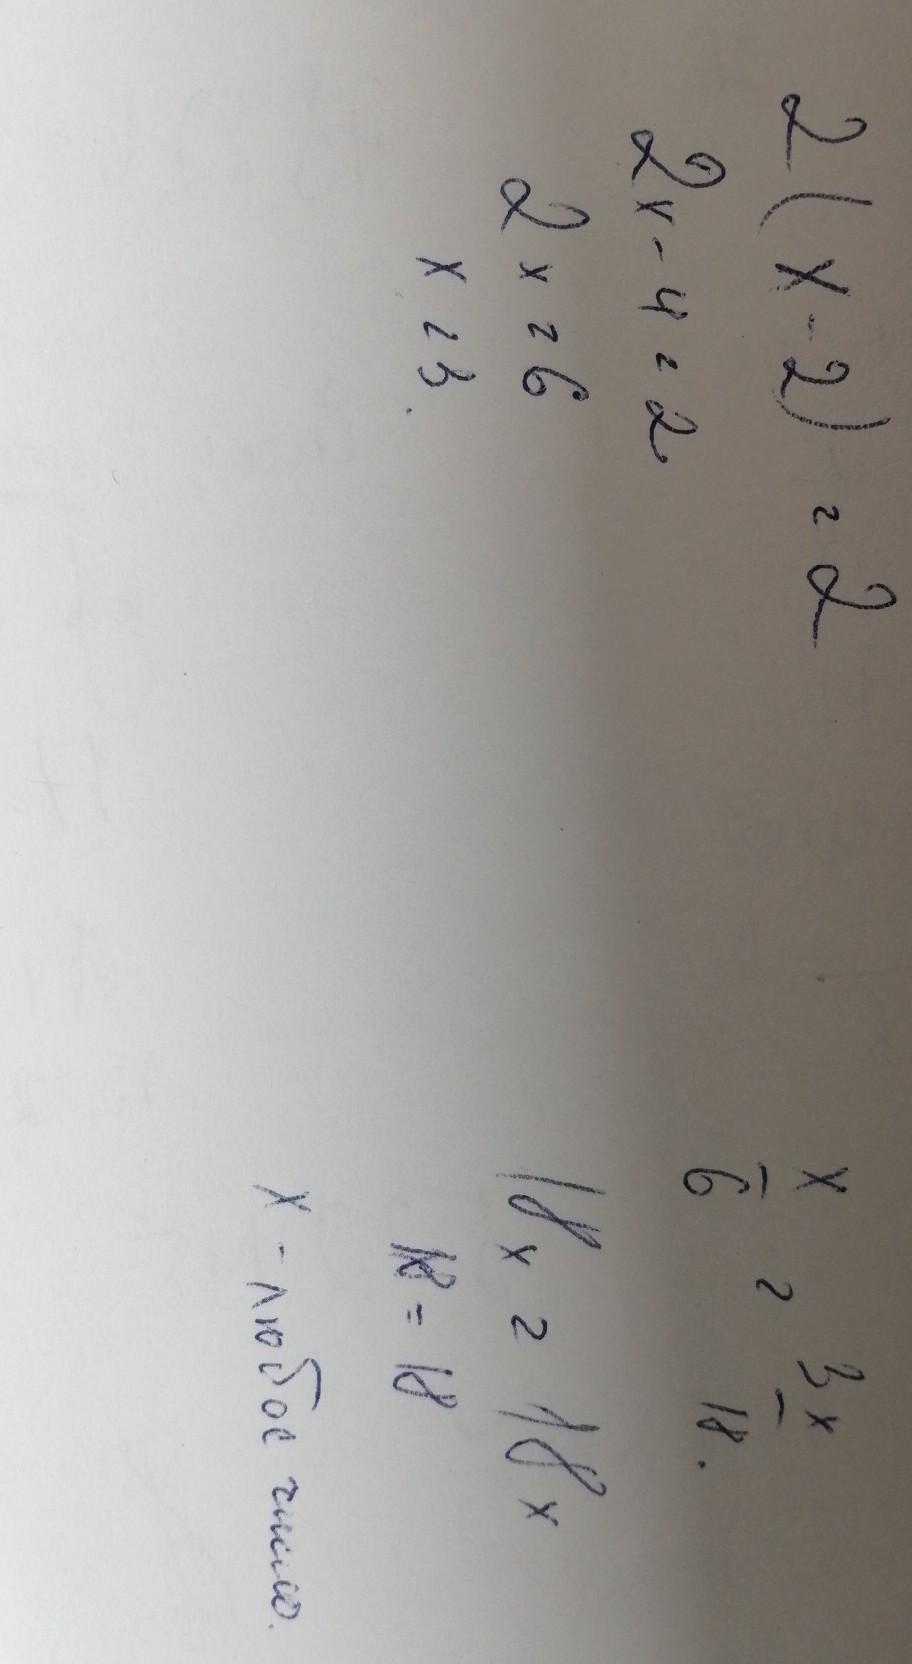 2(x-2) = 2
2x-4=2
2x=6
x=3.
x/6 = 3x/18.
18x = 18x
18=18
x - любое число.